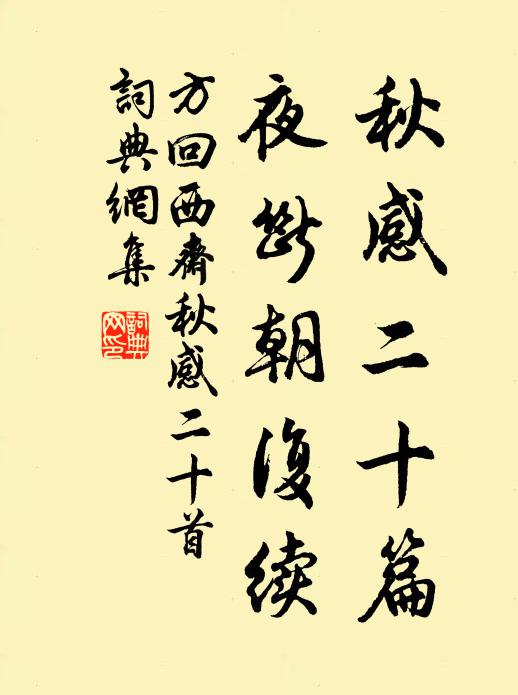 秋感二十篇
夜断朝復续
方回西齋秋感二十首
詞典網集
詞典网印